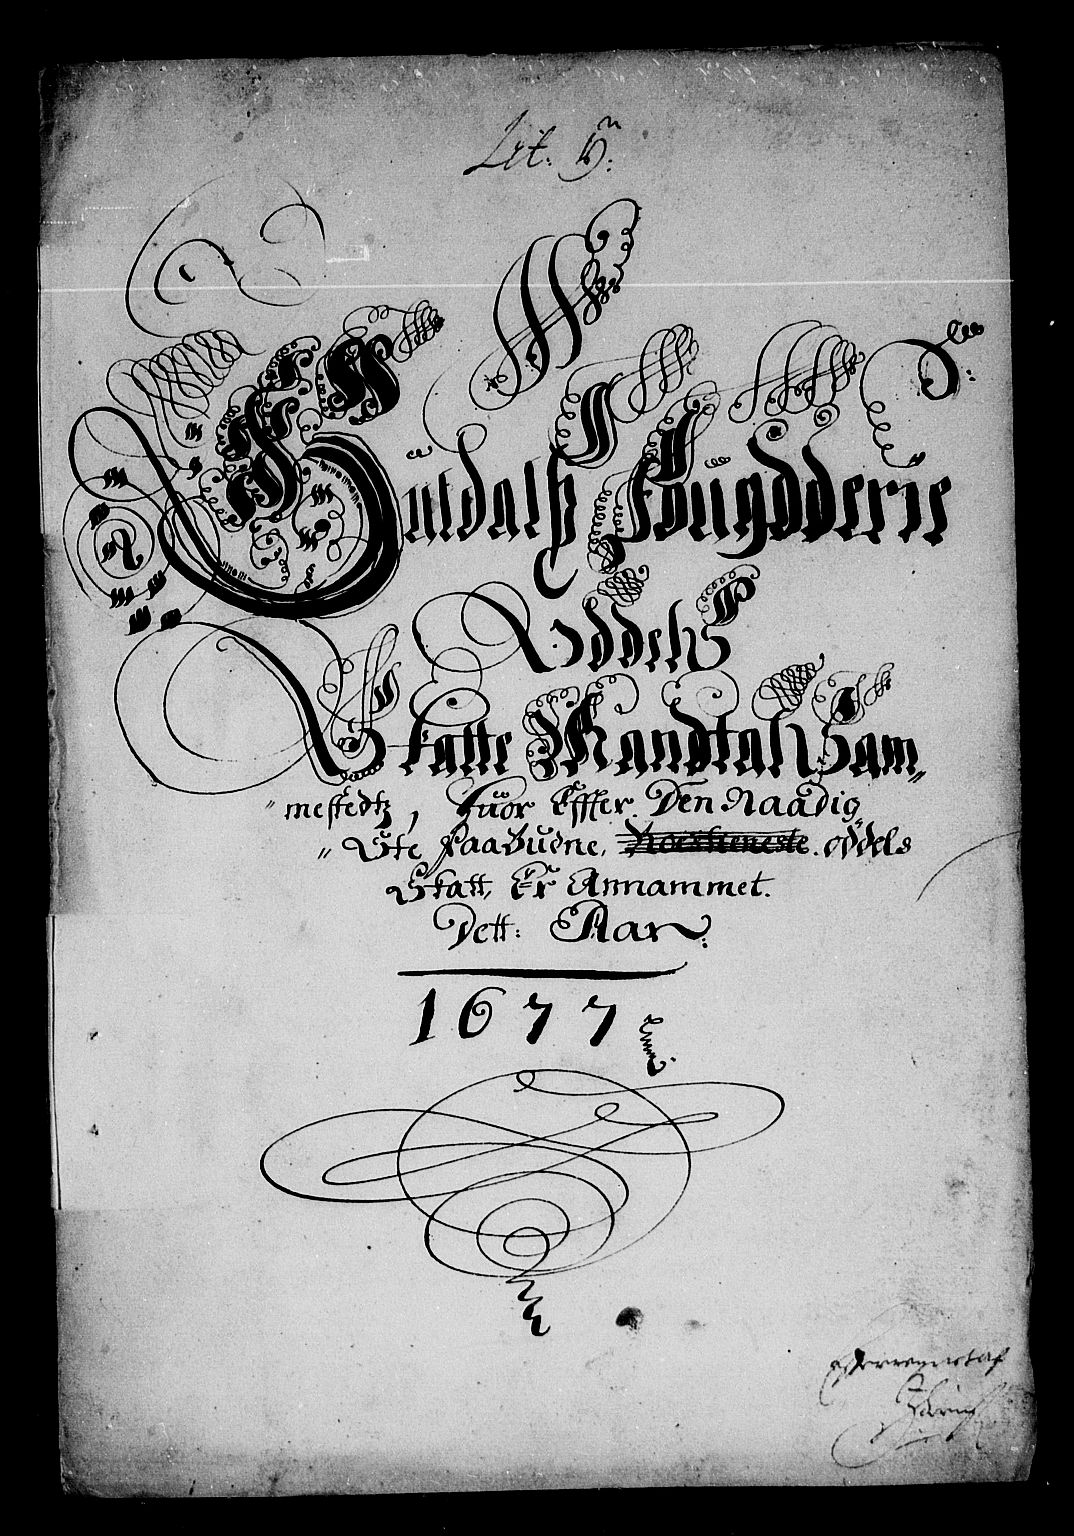 Lit. H:
Guldals Fougdderie
Oddels
Skatte Mandtals Sam„
„mestedtz, Huor Effter Den Naadig„
„Ste PaaBudne, Roestieneste. oddels
Skatt, Er Annammet.
Dett: Aar:
1677